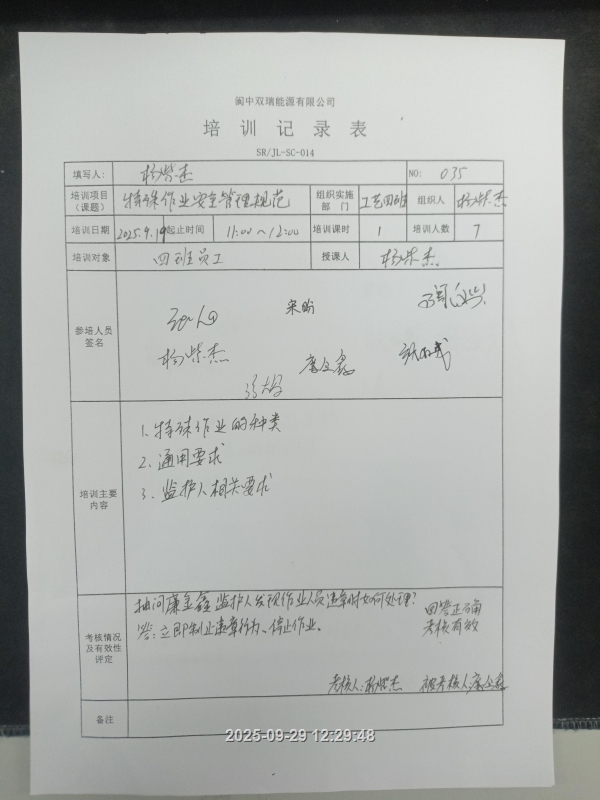 阆中双瑞能源有限公司
培训记录表
SR/JL-SC-014
填写人： 杨紫杰 NO: 035
培训项目（课题） 特殊作业安全管理规范 组织实施部门 工艺四班 组织人 杨紫杰
培训日期 2025.9.19 起止时间 11:00～12:00 培训课时 1 培训人数 7
培训对象 四班员工 授课人 杨紫杰
参培人员签名
宋盼
杨紫杰 廉金鑫
培训主要内容
1、特殊作业的种类
2、通用要求
3、监护人相关要求
考核情况及有效性评定
抽问廉金鑫监护人发现作业人员违章时如何处理？
答：立即制止违章行为、停止作业。
回答正确
考核有效
考核人：杨紫杰 被考核人：廉金鑫
备注
2025-09-29 12:29:48